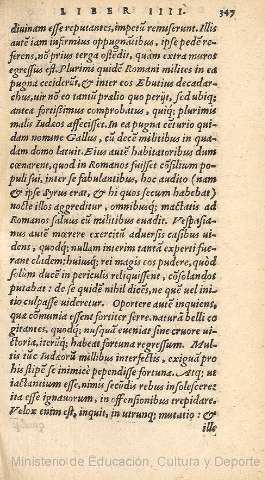 LIBER IIII. 347
diuinam esse reputantes, impetũ remiserunt. Illis
autẽ iam infirmius oppugnãtibus, ipse pedẽ re-
ferens, nõ prius terga ostẽdit, quàm extra muros
egressus est. Plurimi quidẽ Romani milites in ea
pugna ceciderũt, & inter eos Ebutius decadar-
chus, uir nõ eo tantũ prælio quo perijt, sed ubiq;
antea fortissimus comprobatus, quiq; plurimis
malis Iudæos affecisset. In ea pugna cẽturio qui-
dam nomine Gallus, cũ decẽ militibus in quadam
domo latuit. Eius autẽ habitatoribus dum
cœnarent, quod in Romanos fuisset cõsilium po
puli sui, inter se fabulantibus, hoc audito (nam
& ipse Syrus erat, & hi quos secum habebat)
nocte illos aggreditur, omnibusq; mactatis ad
Romanos saluus cũ militibus euadit. Vespasia-
nus autẽ mœrere exercitũ aduersis casibus ui-
dens, quodq; nullam interim tantã experti fue-
rant cladem: huiusq; rei magis eos pudere, quòd
solum ducẽ in periculis reliquissent, cõsolandos
putabat: de se quidẽ nihil dicẽs, ne quẽ uel ini-
tio culpasse uideretur. Oportere autẽ inquiens,
quæ cõmunia essent fortiter ferre, naturã belli co
gitantes, quodq; nusquã eueniat sine cruore ui-
ctoria, iterũq; habeat fortuna regressum. Mul-
tis tũc Iudæorũ millibus interfectis, exiguã pro
his stipẽ se inimicè pependisse fortunæ. Atq; ut
iactantium esse, nimis secũdis rebus insolescere,
ita esse ignauorum, in offensionibus trepidare.
Velox enim est, inquit, in utrunq; mutatio: &
ille
Ministerio de Educación, Cultura y Deporte